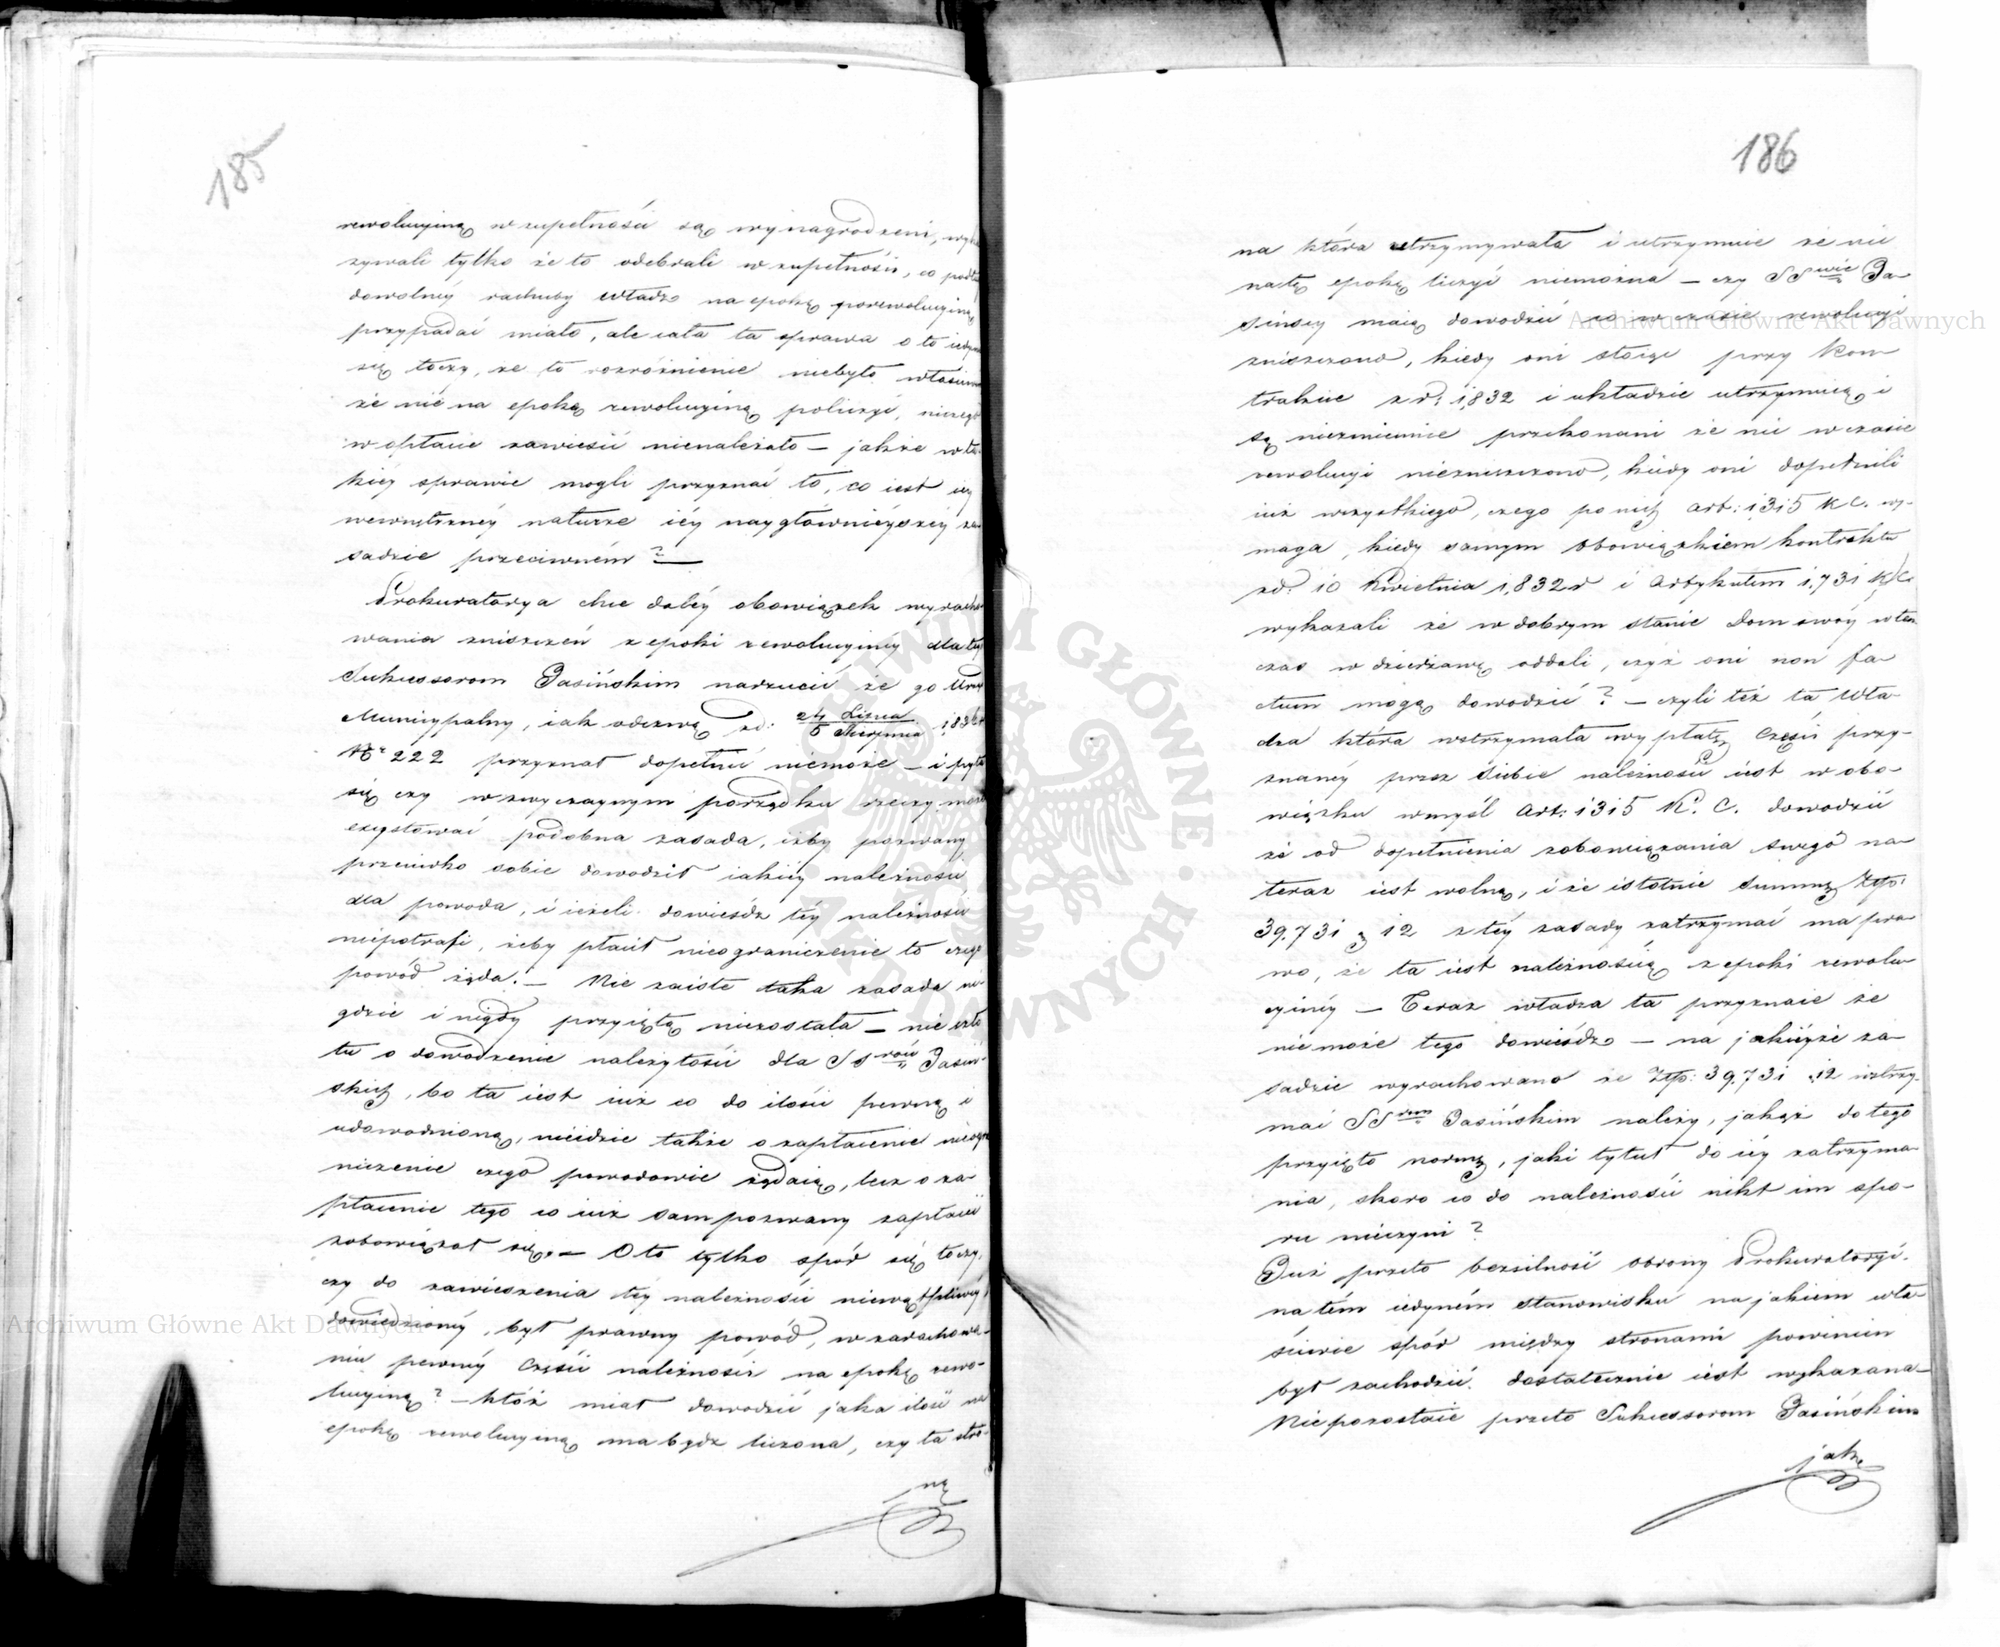 185
rewolucyiną w zupełności są wynagrodzeni, wyka
zywali tylko że to odebrali w zupełności, co podłu
dowolnéy rachuby władz na epokę porewolucyiną
przypadać miało, ale cała ta sprawa o to iedynie
się toczy, że to rozróżnienie niebyło właściwe
że nic na epokę rewolucyiną policzyć, niczego
w opłacie zawiesić nienależało — jakże w ta
kiéy sprawie mogli przyznać to, co iest iéy
wewnętrznéy naturze iéy naygłównieyszéy za
sadzie przeciwném? —
Prokuratorya chce daléy obowiązek wyracho
wania zniszczeń z epoki rewolucyinéy dla tego
Sukcessorom Jasińskim narzucić że go Urząd
Municypalny, iak odezwą z d: 24 Lipca / 5 Sierpnia 183
Nr 222 przyznał dopełnić niemoże — i pyta
się czy w zwyczaynym porządku rzeczy może
exystować podobna zasada, iżby pozwany
przeciwko sobie dowodził iakiéy należności
dla powoda, i ieżeli dowieśdź téy należności
niepotrafi, żeby płacił nieograniczenie to czego
powód żąda. — Nie zaiste taka zasada ni
gdzie i nigdy przyiętą niezostała — nie szło
tu o dowodzenie należytości dla SSrów Jasiń-
skich, bo ta iest iuż co do ilości pewną i
udowodnioną, nieidzie także o zapłacenie nieogra
niczenie czego powodowie żądaią, lecz o za
płacenie tego co iuż sam pozwany zapłacić
zobowiązał się. — O to tylko spór się toczy,
czy do zawieszenia téy należności niewątpliwéj
dowiedzionéy, był prawny powód, w zarachowa-
niu pewnéy części należności na epokę rewo-
lucyiną? — któż miał dowodzić jaka ilość na
epokę rewolucyiną ma bydź liczona, czy ta stro-
ną
186
na która utrzymywała i utrzymuie że nic
na tę epokę liczyć niemożna — czy SSwie Ja-
sińscy maią dowodzić co w czasie rewolucyi
zniszczono, kiedy oni stoiąc przy Kon
trakcie z r: 1832 i układzie utrzymuią i
są niezmiennie przekonani że nic w czasie
rewolucyi niezniszczono, kiedy oni dopełnili
iuż wszystkiego, czego po nich art: 1315 K C. wy-
maga, kiedy samym obowiązkiem kontraktu
z d: 10 Kwietnia 1832 r i Artykułem 1731 K C
wykazali że w dobrym stanie Dom swóy w ten
czas w dzierżawę oddali, czyż oni non fa
ctum mogą dowodzić? — czyli téż ta Wła-
dza która wstrzymała wypłatę części przy-
znanéy przez siebie należności iest w obo-
wiązku wmyśl Art: 1315 K. C. dowodzić
że od dopełnienia zobowiązania swego na
teraz iest wolną, i że istotnie summę Złp:
39,731 g 12 z téy zasady zatrzymać ma pra
wo, że ta iest należnością z epoki rewolu
cyinéy — Teraz władza ta przyznaie że
niemoże tego dowieśdź — na jakiéyże za-
sadzie wyrachowano że Złp: 39,731 12 wstrzy-
mać SSrom Jasińskim należy, jakąż do tego
przyięto normę, jaki tytuł do iéy zatrzyma-
nia, skoro co do należności nikt im spo-
ru nieczyni?
Już przeto bezsilność obrony Prokuratoryi.
na tém iedyném stanowisku na jakiem wła-
ściwie spór między stronami powinien
był zachodzić. dostatecznie iest wykazana —
Niepozostaie przeto Sukcessorom Jasińskim
jak
Archiwum Główne Akt Dawnych
Archiwum Główne Akt Dawnych
ARCHIWUM GŁÓWNE AKT DAWNYCH